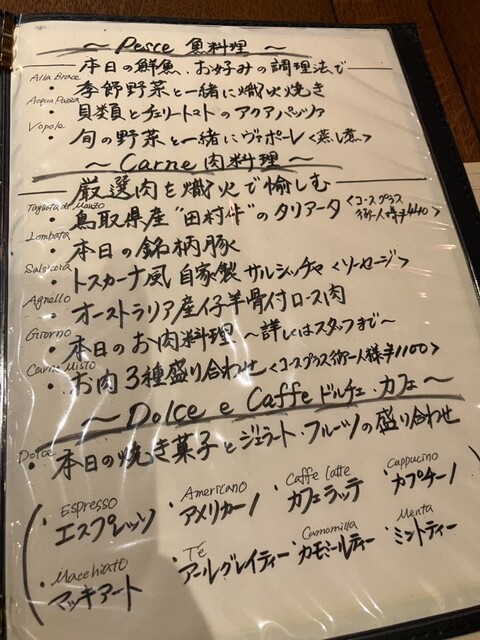 ~ Pesce 魚料理 ~
本日の鮮魚、お好みの調理法で
Alla Brace
・季節野菜と一緒に熾火焼き
Acqua Pazza
・貝類とチェリートマトのアクアパッツァ
Vapole
・旬の野菜と一緒にヴァポーレ<蒸し煮>
~ Carne 肉料理 ~
厳選肉を熾火で愉しむ
Tagliata de Manzo
・鳥取県産"田村牛"のタリアータ<コースプラスお一人様¥440>
Lombata
・本日の銘柄豚
Salsiccia
・トスカーナ風 自家製サルシッチャ <ソーセージ>
Agnello
・オーストラリア産仔羊骨付ロース肉
Giorno
・本日のお肉料理 ~詳しくはスタッフまで~
Carne Misto
・お肉3種盛り合わせ<コースプラスお一人様¥1100>
~ Dolce e Caffe ドルチェ・カフェ ~
Dolce
・本日の焼き菓子とジェラート・フルーツの盛り合わせ
Espresso Americano Caffe latte Cappucino
・エスプレッソ ・アメリカーノ ・カフェラッテ ・カプチーノ
Macchiato Té Camomilla Menta
・マッキアート ・アールグレイティー ・カモミールティー ・ミントティー